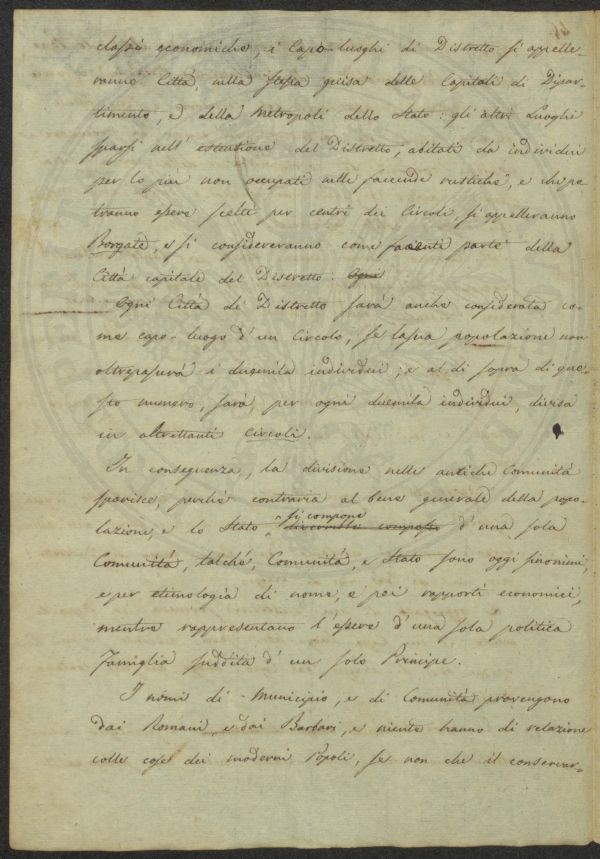 classi economiche, i Capo-luoghi di Distretto si appelle-
ranno Città, nella stessa guisa delle Capitali di Dipar-
timento, e della Metropoli dello Stato: gli altri Luoghi
sparsi nell' estensione del Distretto, abitati da individui
per lo più non occupati nelle faccende rustiche, e che po-
tranno essere scelti per centri dei Circoli, si appelleranno
Borgate, e si considereranno come facenti parte della
Città capitale del Distretto. Ogni
Ogni Città di Distretto sarà anche considerata co-
me capo-luogo d' un Circolo, se la sua popolazione non
oltrepasserà i duemila individui; e al di sopra di que-
sto numero, sarà, per ogni duemila individui, divisa
in altrettanti Circoli.
In conseguenza, la divisione nelle antiche Comunità
sparisce, perché contraria al bene generale della popo-
lazione, e lo Stato si compone d' una sola
Comunità, talché, Comunità, e Stato sono oggi sinonimi,
e per etimologia di nome, e pei rapporti economici,
mentre rappresentano l' essere d' una sola politica
Famiglia suddita d' un solo Principe.
I nomi di Municipio, e di Comunità provengono
dai Romani, e dai Barbari, e niente hanno di relazione
colle cose dei moderni Popoli, se non che il conservar-